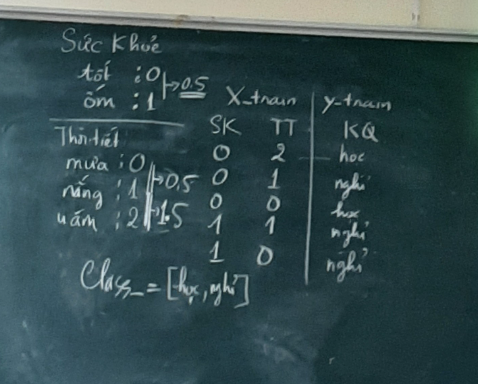 Sức Khoẻ
tốt : 0
ốm : 1
→ 0.5
Thời tiết
mưa : 0
nắng : 1
u ám : 2
→ 0.5
→ 1.5
X_train | y_train
SK TT | KQ
0 2 — học
0 1 nghỉ
0 0 học
1 1 nghỉ
1 0 nghỉ
Class_ = [học, nghỉ]